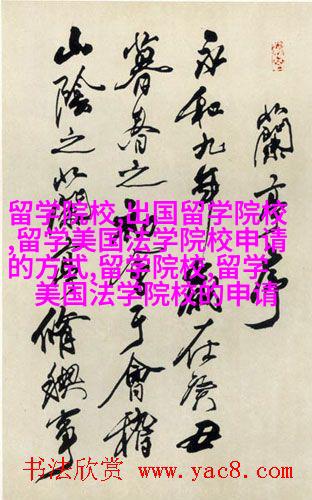 蘭亭序
永和九年歲在癸丑
暮春之初會于會稽
山陰之蘭亭脩禊事
留学院校,出国留学院校
,留学美国法学院校申请
的方式,留学院校,留学
美国法学院校的申请
书法欣赏 www.yac8.com